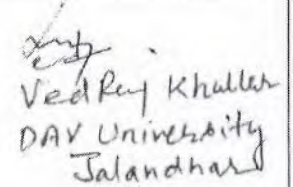 Ved Raj Khullar
DAV University
Jalandhar